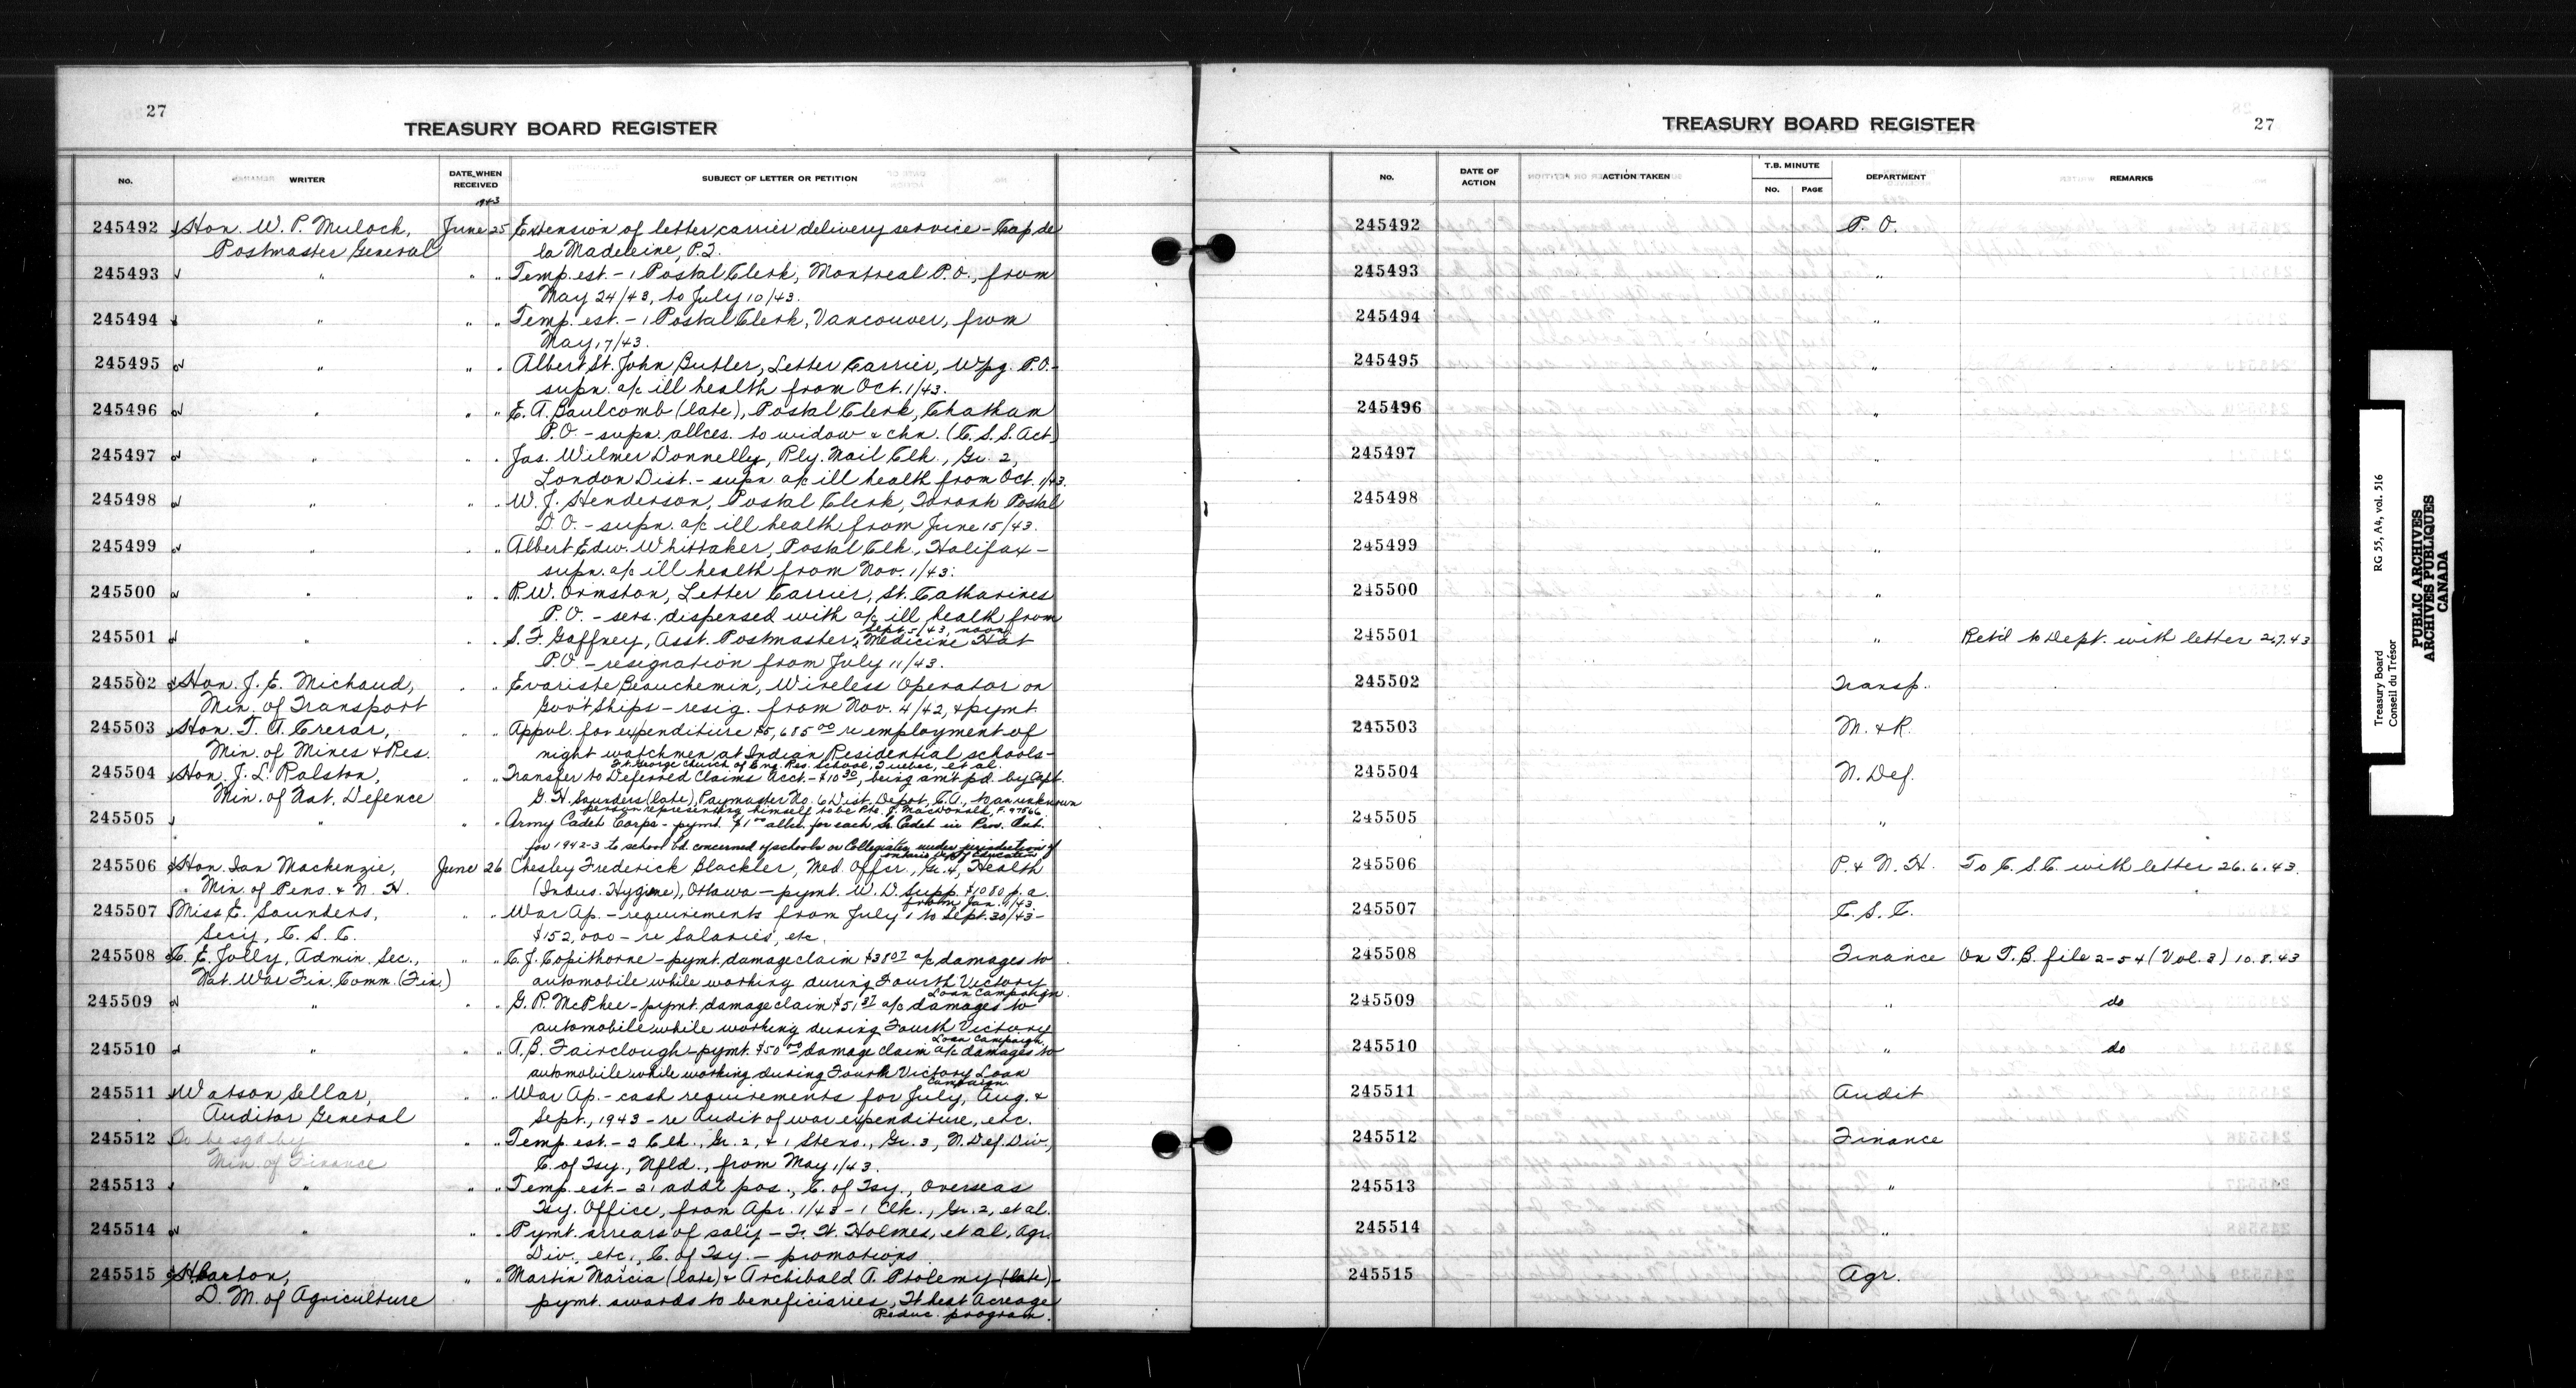 27
TREASURY BOARD REGISTER
No. WRITER DATE WHEN RECEIVED SUBJECT OF LETTER OR PETITION
1943
245492 Hon. W. P. Mulock, June 25 Extension of letter carrier delivery service - Cap de
Postmaster General la Madeleine, P.Q.
245493 " " " Temp. est. - 1 Postal Clerk, Montreal P.O., from
May 24/43, to July 10/43.
245494 " " " Temp. est. - 1 Postal Clerk, Vancouver, from
May 17/43.
245495 " " " Albert St. John Butler, Letter Carrier, Wpg. P.O. -
supn. a/c ill health from Oct. 1/43.
245496 " " " E. A. Baulcomb (late), Postal Clerk, Chatham
P.O. - supn. allces. to widow & chn. (C. S. S. Act)
245497 " " " Jas. Wilmer Donnelly, Rly. Mail Clk., Gr. 2,
London Dist. - supn a/c ill health from Oct. 1/43.
245498 " " " W. J. Henderson, Postal Clerk, Toronto Postal
D.O. - supn. a/c ill health from June 15/43.
245499 " " " Albert Edw. Whittaker, Postal Clk., Halifax -
supn. a/c ill health from Nov. 1/43.
245500 " " " R. W. Ormston, Letter Carrier, St. Catharines
P.O. - sers. dispensed with a/c ill health from
Sept 5/43, noon
245501 " " " S. F. Gaffney, Asst. Postmaster, Medicine Hat
P.O. - resignation from July 11/43.
245502 Hon. J. E. Michaud, " " Evariste Beauchemin, Wireless Operator on
Min. of Transport Gov't Ships - resig. from Nov. 4/42, & pymt.
245503 Hon. T. A. Crerar, " " Appvl. for expenditure $5,685.00 re employment of
Min. of Mines & Res. night watchmen at Indian Residential schools -
St. George Church of Eng. Res. School, Quebec, et al.
245504 Hon. J. L. Ralston, " " Transfer to Deferred Claims Acct. - $10.30, being am't pd. by Capt.
Min. of Nat. Defence G. H. Saunders (late), Paymaster No. 6 Dist. Depot, C.A., to an unknown
person representing himself to be Pte. J. MacDonald, F.97866.
245505 " " " Army Cadet Corps - pymt. $1.00 allce. for each Sr. Cadet in Prov. Ont.
for 1942-3 to school bd. concerned of schools or Collegiates under jurisdiction of
Ontario Dept. of Education
245506 Hon. Ian Mackenzie, June 26 Chesley Frederick Blackler, Med. Offcr., Gr. 4, Health
Min. of Pens. & N. H. (Indus. Hygiene), Ottawa - pymt. W. D. Supp. $1080 p.a.
from Jan. 1/43.
245507 Miss E. Saunders, " " War Ap. - requirements from July 1 to Sept. 30/43 -
Secy, C. S. C. $152,000 - re Salaries, etc.
245508 C. E. Jolly, Admin. Sec., " " C. J. Copithorne - pymt. damage claim $38.07 a/c damages to
Nat. War Fin. Comm. (Fin.) automobile while working during Fourth Victory
Loan Campaign.
245509 " " " G. R. McPhee - pymt. damage claim $51.37 a/c damages to
automobile while working during Fourth Victory
Loan Campaign.
245510 " " " A. B. Fairclough - pymt. $50.00 damage claim a/c damages to
automobile while working during Fourth Victory Loan
Campaign.
245511 Watson Sellar, " " War Ap. - cash requirements for July, Aug. &
Auditor General Sept., 1943 - re Audit of war expenditure, etc.
245512 To be sgd by " " Temp. est. - 2 Clk., Gr. 2, & 1 Steno., Gr. 3, N. Def. Div.,
Min. of Finance C. of Tsy., Nfld., from May 1/43.
245513 " " " Temp. est. - 21 addl pos., C. of Tsy., Overseas
Tsy. Office, from Apr. 1/43 - 1 Clk., Gr. 2, et al.
245514 " " " Pymt. arrears of saly - F. H. Holmes, et al, Agr.
Div., etc., C. of Tsy. - promotions
245515 H. Barton, " " Martin Marcia (late) & Archibald A. Ptolemy (late)
D. M. of Agriculture pymt. awards to beneficiaries, Wheat Acreage
Reduc. program.
TREASURY BOARD REGISTER
27
No. DATE OF ACTION ACTION TAKEN T.B. MINUTE No. PAGE DEPARTMENT REMARKS
245492 P. O.
245493 "
245494 "
245495 "
245496 "
245497 "
245498 "
245499 "
245500 "
245501 " Ret'd to Dept. with letter 2.7.43
245502 Transp.
245503 M. & R.
245504 N. Def.
245505 "
245506 P. & N. H. To C. S. C. with letter 26.6.43.
245507 C. S. C.
245508 Finance On T.B. file 2-54 (Vol. 3) 10.8.43
245509 " do
245510 " do
245511 Audit
245512 Finance
245513 "
245514 "
245515 Agr.
Treasury Board RG 55, A4, vol. 516
Conseil du Trésor
PUBLIC ARCHIVES
ARCHIVES PUBLIQUES
CANADA